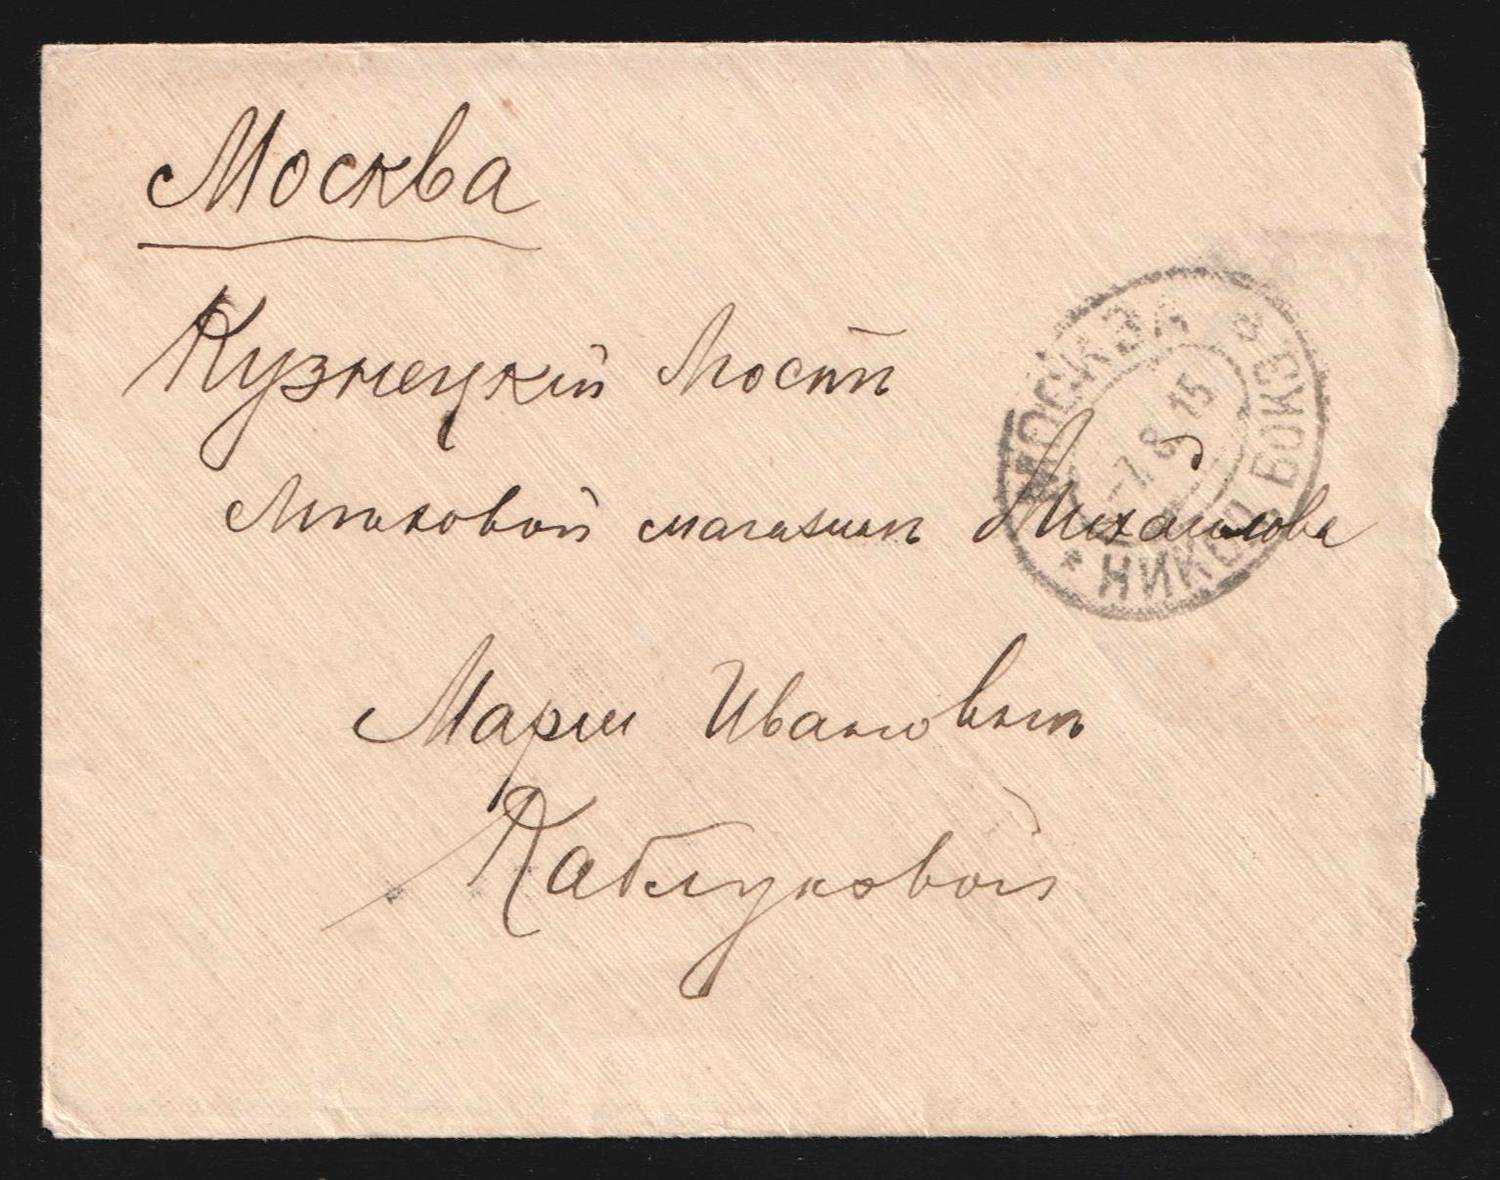 Москва
Кузнецкій Мостъ
Мѣховой магазинъ Михайлова
Маріи Ивановнѣ
Каблуковой
МОСКВА
7.8.15
НИКОЛ. ВОКЗ.